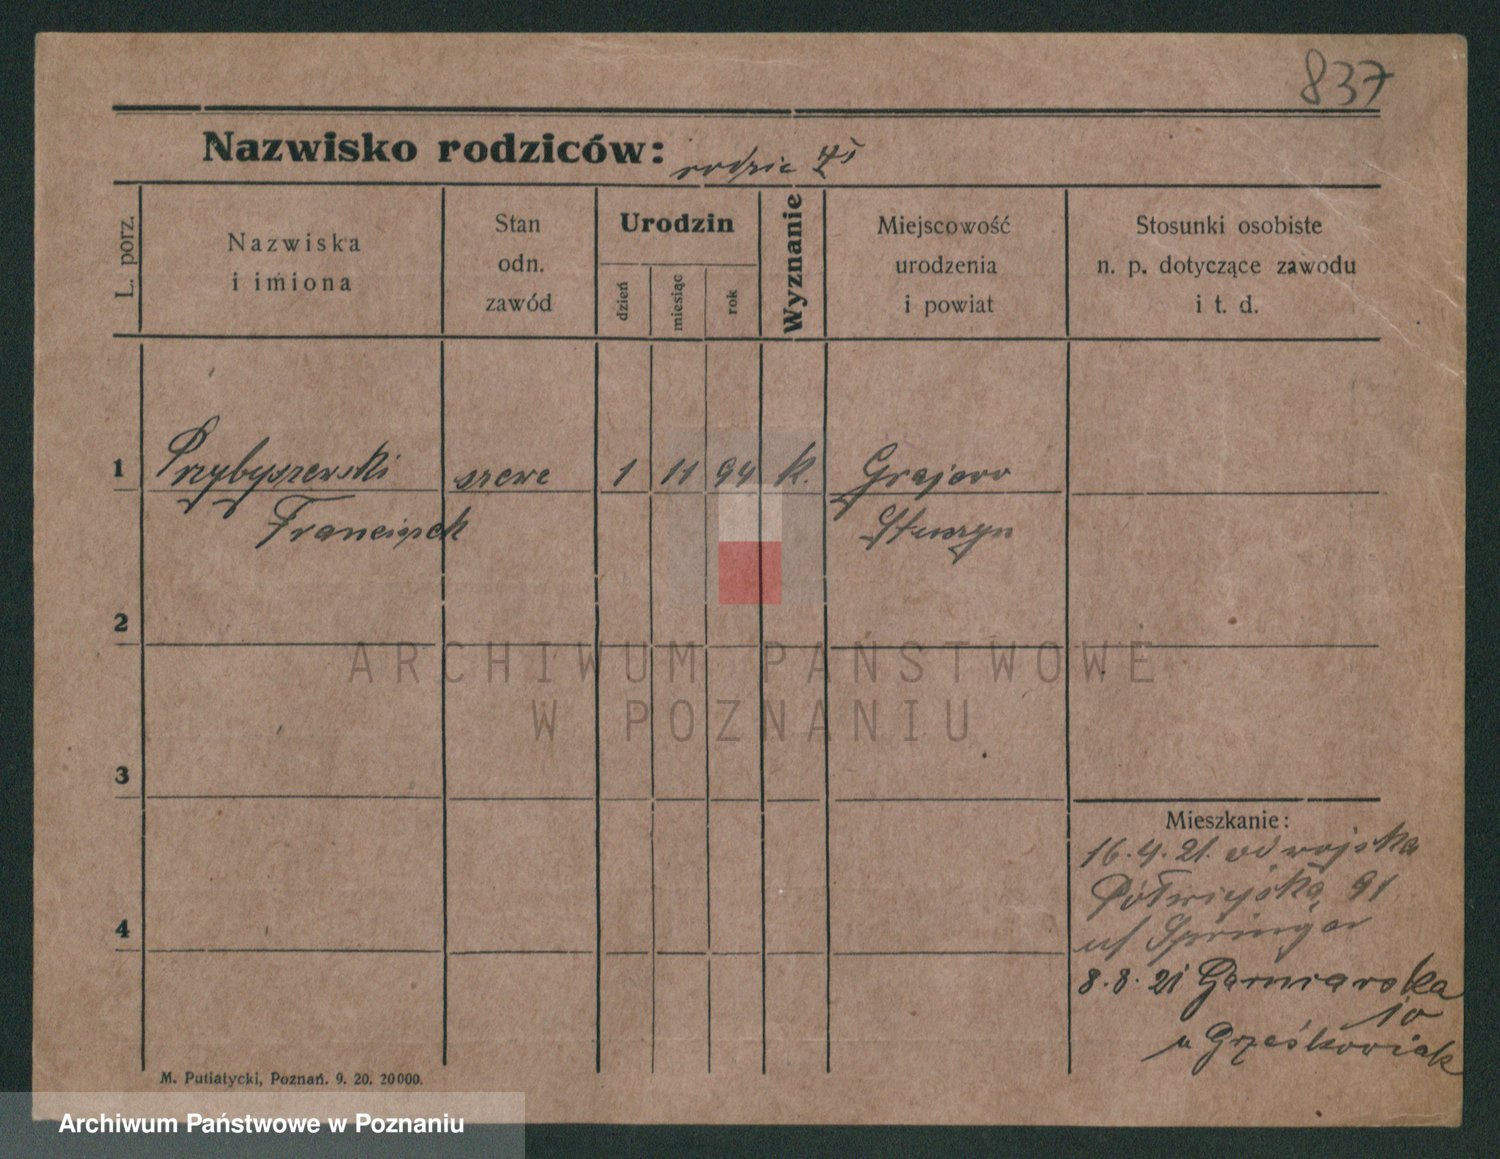 837
Nazwisko rodziców: rodzic
L. porz.
Nazwiska
i imiona
Stan
odn.
zawód
Urodzin
dzień
miesiąc
rok
Wyznanie
Miejscowość
urodzenia
i powiat
Stosunki osobiste
n. p. dotyczące zawodu
i t. d.
1 Przybyszewski szewc 1 11 94 k. Grajewo
Franciszek
2
3
4
Mieszkanie:
16.4.21. od wojska
Półwiejska 91
8.8.21 Garncarska
10
u Grześkowiak
M. Putiatycki, Poznań. 9. 20. 20000.
ARCHIWUM PAŃSTWOWE
W POZNANIU
Archiwum Państwowe w Poznaniu